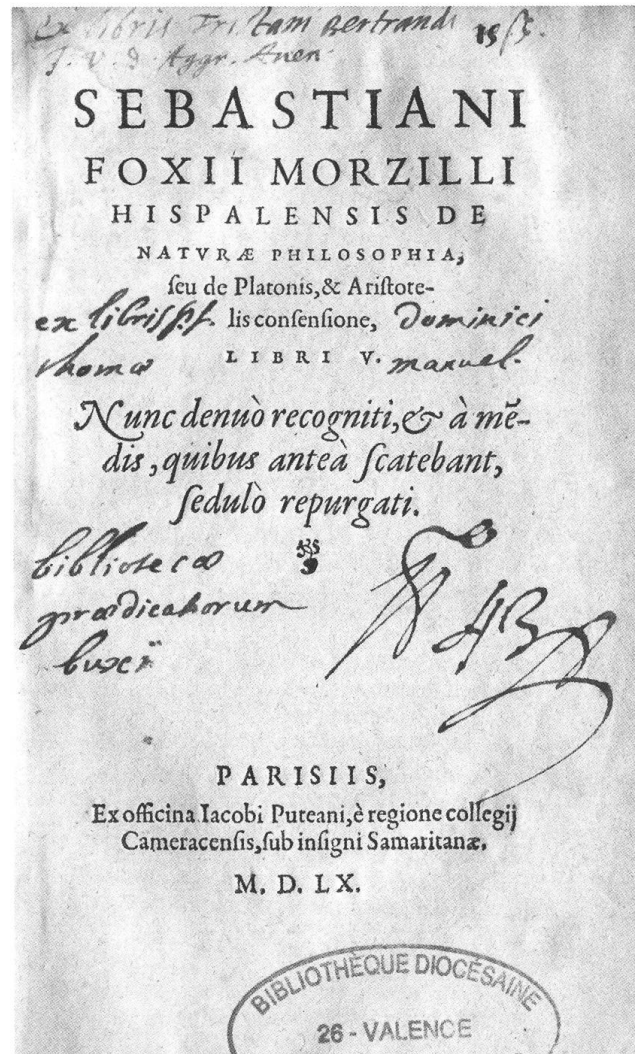 Ex libris Tristani Bertrandi
J. V. D. Aggr. Aven.
SEBASTIANI
FOXII MORZILLI
HISPALENSIS DE
NATVRÆ PHILOSOPHIA,
ſeu de Platonis, & Ariſtote-
ex libris f. lis conſenſione, dominici
thomæ LIBRI V. manuel.
Nunc denuò recogniti, & à mẽ-
dis, quibus anteà ſcatebant,
ſedulò repurgati.
bibliotecæ
prædicatorum
buxi
PARISIIS,
Ex officina Iacobi Puteani, è regione collegij
Cameracenſis, ſub inſigni Samaritanæ.
M. D. LX.
BIBLIOTHÈQUE DIOCÉSAINE
26 - VALENCE